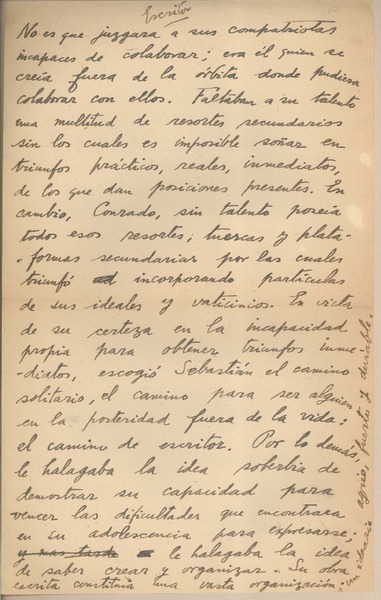 Escritor
No es que juzgara a sus compatriotas
incapaces de colaborar; era él quien se
creía fuera de la órbita donde pudiera
colaborar con ellos. Faltaban a su talento
una multitud de resortes secundarios
sin los cuales es imposible soñar en
triunfos prácticos, reales, inmediatos,
de los que dan posiciones presentes. En
cambio, Conrado, sin talento poseía
todos esos resortes, tuercas y plata-
-formas secundarias por las cuales
triunfó incorporando partículas
de sus ideales y vaticinios. En vista
de su certeza en la incapacidad
propia para obtener triunfos inme-
-diatos, escogió Sebastián el camino
solitario, el camino para ser alguien
en la posteridad fuera de la vida:
el camino de escritor. Por lo demás,
le halagaba la idea soberbia de
demostrar su capacidad para
vencer las dificultades que encontrara
en su adolescencia para expresarse;
y mas tarde le halagaba la idea
de saber crear y organizar. Su obra
escrita constituía una vasta organización:
un ideario agrio, fuerte y durable.